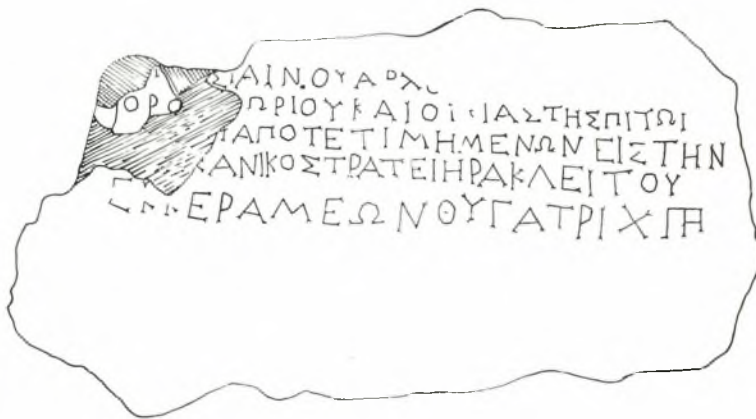 ΑΙΝ.ΟΥΑΡΧ
ΟΡΟ ΩΡΙΟΥΚΑΙΟΙΚΙΑΣΤΗΣΠΙΤΩΙ
ΑΠΟΤΕΤΙΜΗΜΕΝΩΝΕΙΣΤΗΝ
ΚΑΝΙΚΟΣΤΡΑΤΕΙΗΡΑΚΛΕΙΤΟΥ
ΕΡΑΜΕΩΝΘΥΓΑΤΡΙΧ𐅅